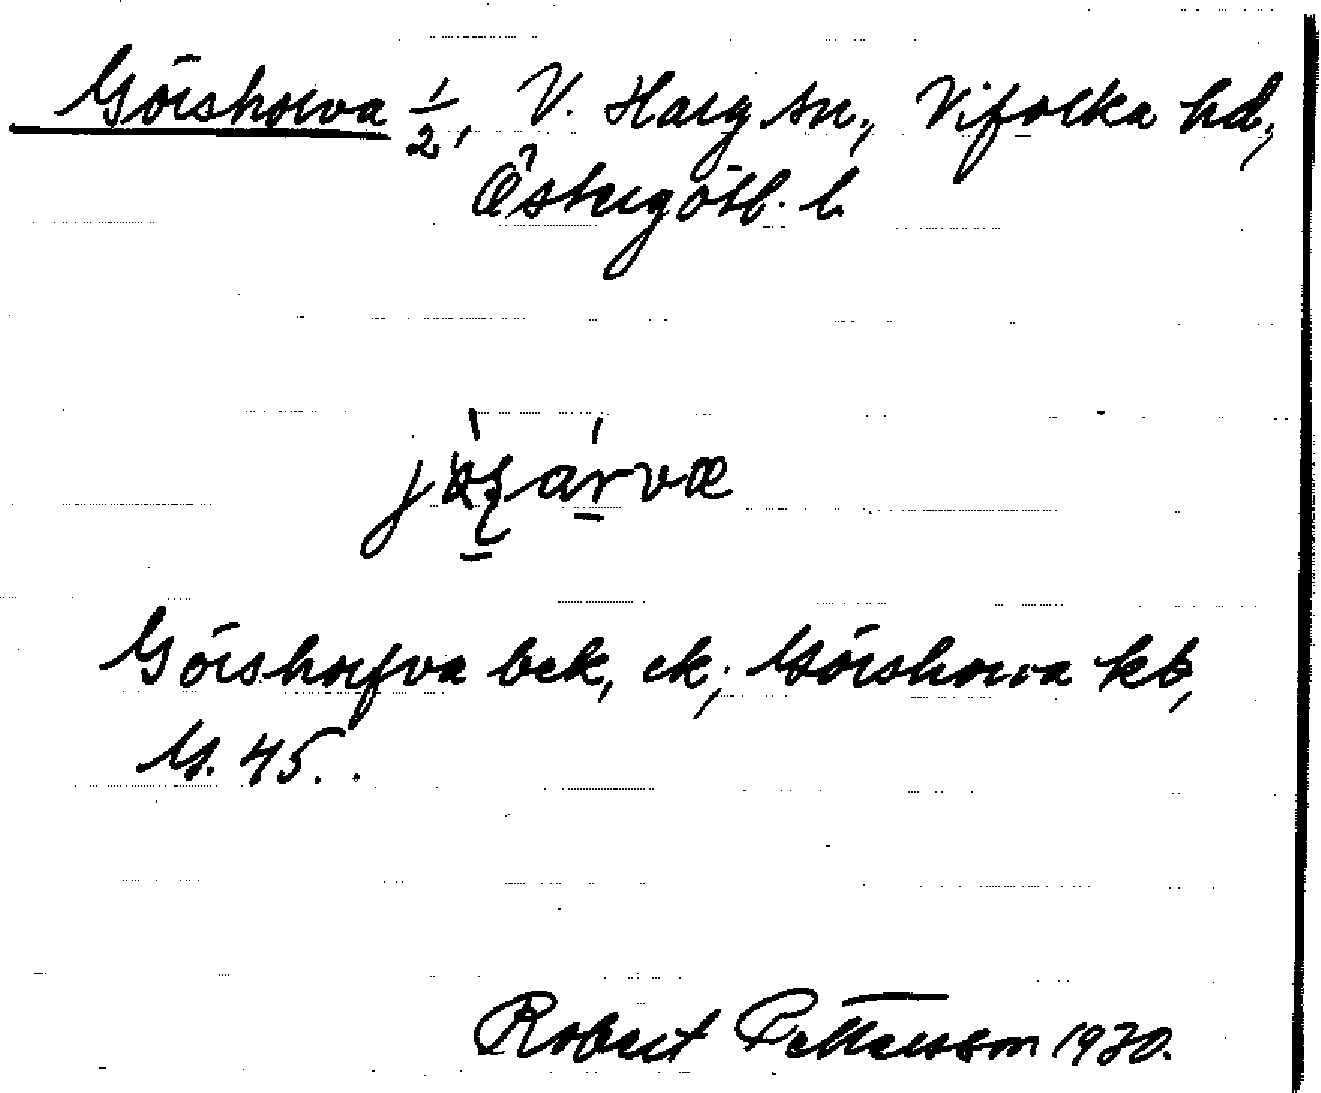 Görshorva 1/2, V. Harg sn., Vifolka hd,
Östergötl. l.
Görshorfva bek, ek; Görshorva kb,
G. 45.
Robert Pettersson 1930.